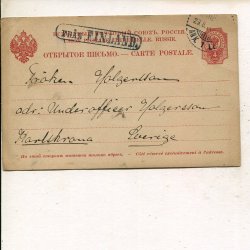 ВСЕМІРНЫЙ ПОЧТОВЫЙ СОЮЗЪ. РОССІЯ.
UNION POSTALE UNIVERSELLE. RUSSIE.
FRÅN FINLAND.
ОТКРЫТОЕ ПИСЬМО. — CARTE POSTALE.
Fröken Holgersson
adr: Underofficer Holgersson
Karlskrona Sverige
На этой сторонѣ пишется только адресъ. — Côté réservé exclusivement à l'adresse.